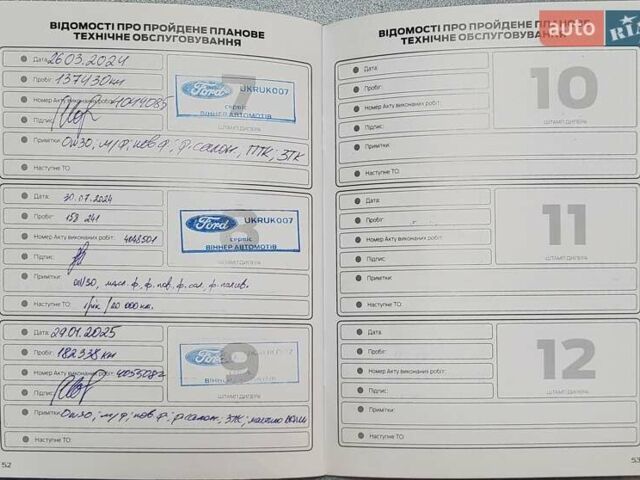 ВІДОМОСТІ ПРО ПРОЙДЕНЕ ПЛАНОВЕ
ТЕХНІЧНЕ ОБСЛУГОВУВАННЯ
Дата: 26.03.2024
Пробіг: 137430 км
Номер Акту виконаних робіт: 4049085
Підпис:
7
Ford
UKRUK007
сервіс
ВІННЕР АВТОМОТІВ
ШТАМП ДИЛЕРА
Примітки: 0W30, м/ф, пов ф, ф. салон, ПТК, ЗТК
Наступне ТО:
Дата: 30.07.2024
Пробіг: 159 241
Номер Акту виконаних робіт: 4048501
Підпис:
8
Ford
UKRUK007
сервіс
ВІННЕР АВТОМОТІВ
ШТАМП ДИЛЕРА
Примітки: 0W30, масл. ф. ф. пов. ф. сал, ф. палив.
Наступне ТО: 1рік / 20 000 км.
Дата: 29.01.2025
Пробіг: 182338 км
Номер Акту виконаних робіт:
Підпис:
9
Ford
ВІННЕР АВТОМОТІВ
ШТАМП ДИЛЕРА
Примітки: 0W30, м/ф, пов ф, ф салон, ЗТК,
Наступне ТО:
52
ВІДОМОСТІ ПРО ПРОЙДЕНЕ ПЛАНОВЕ
ТЕХНІЧНЕ ОБСЛУГОВУВАННЯ
auto RIA
Дата:
Пробіг:
Номер Акту виконаних робіт:
Підпис:
10
ШТАМП ДИЛЕРА
Примітки:
Наступне ТО:
Дата:
Пробіг:
Номер Акту виконаних робіт:
Підпис:
11
ШТАМП ДИЛЕРА
Примітки:
Наступне ТО:
Дата:
Пробіг:
Номер Акту виконаних робіт:
Підпис:
12
ШТАМП ДИЛЕРА
Примітки:
Наступне ТО:
53